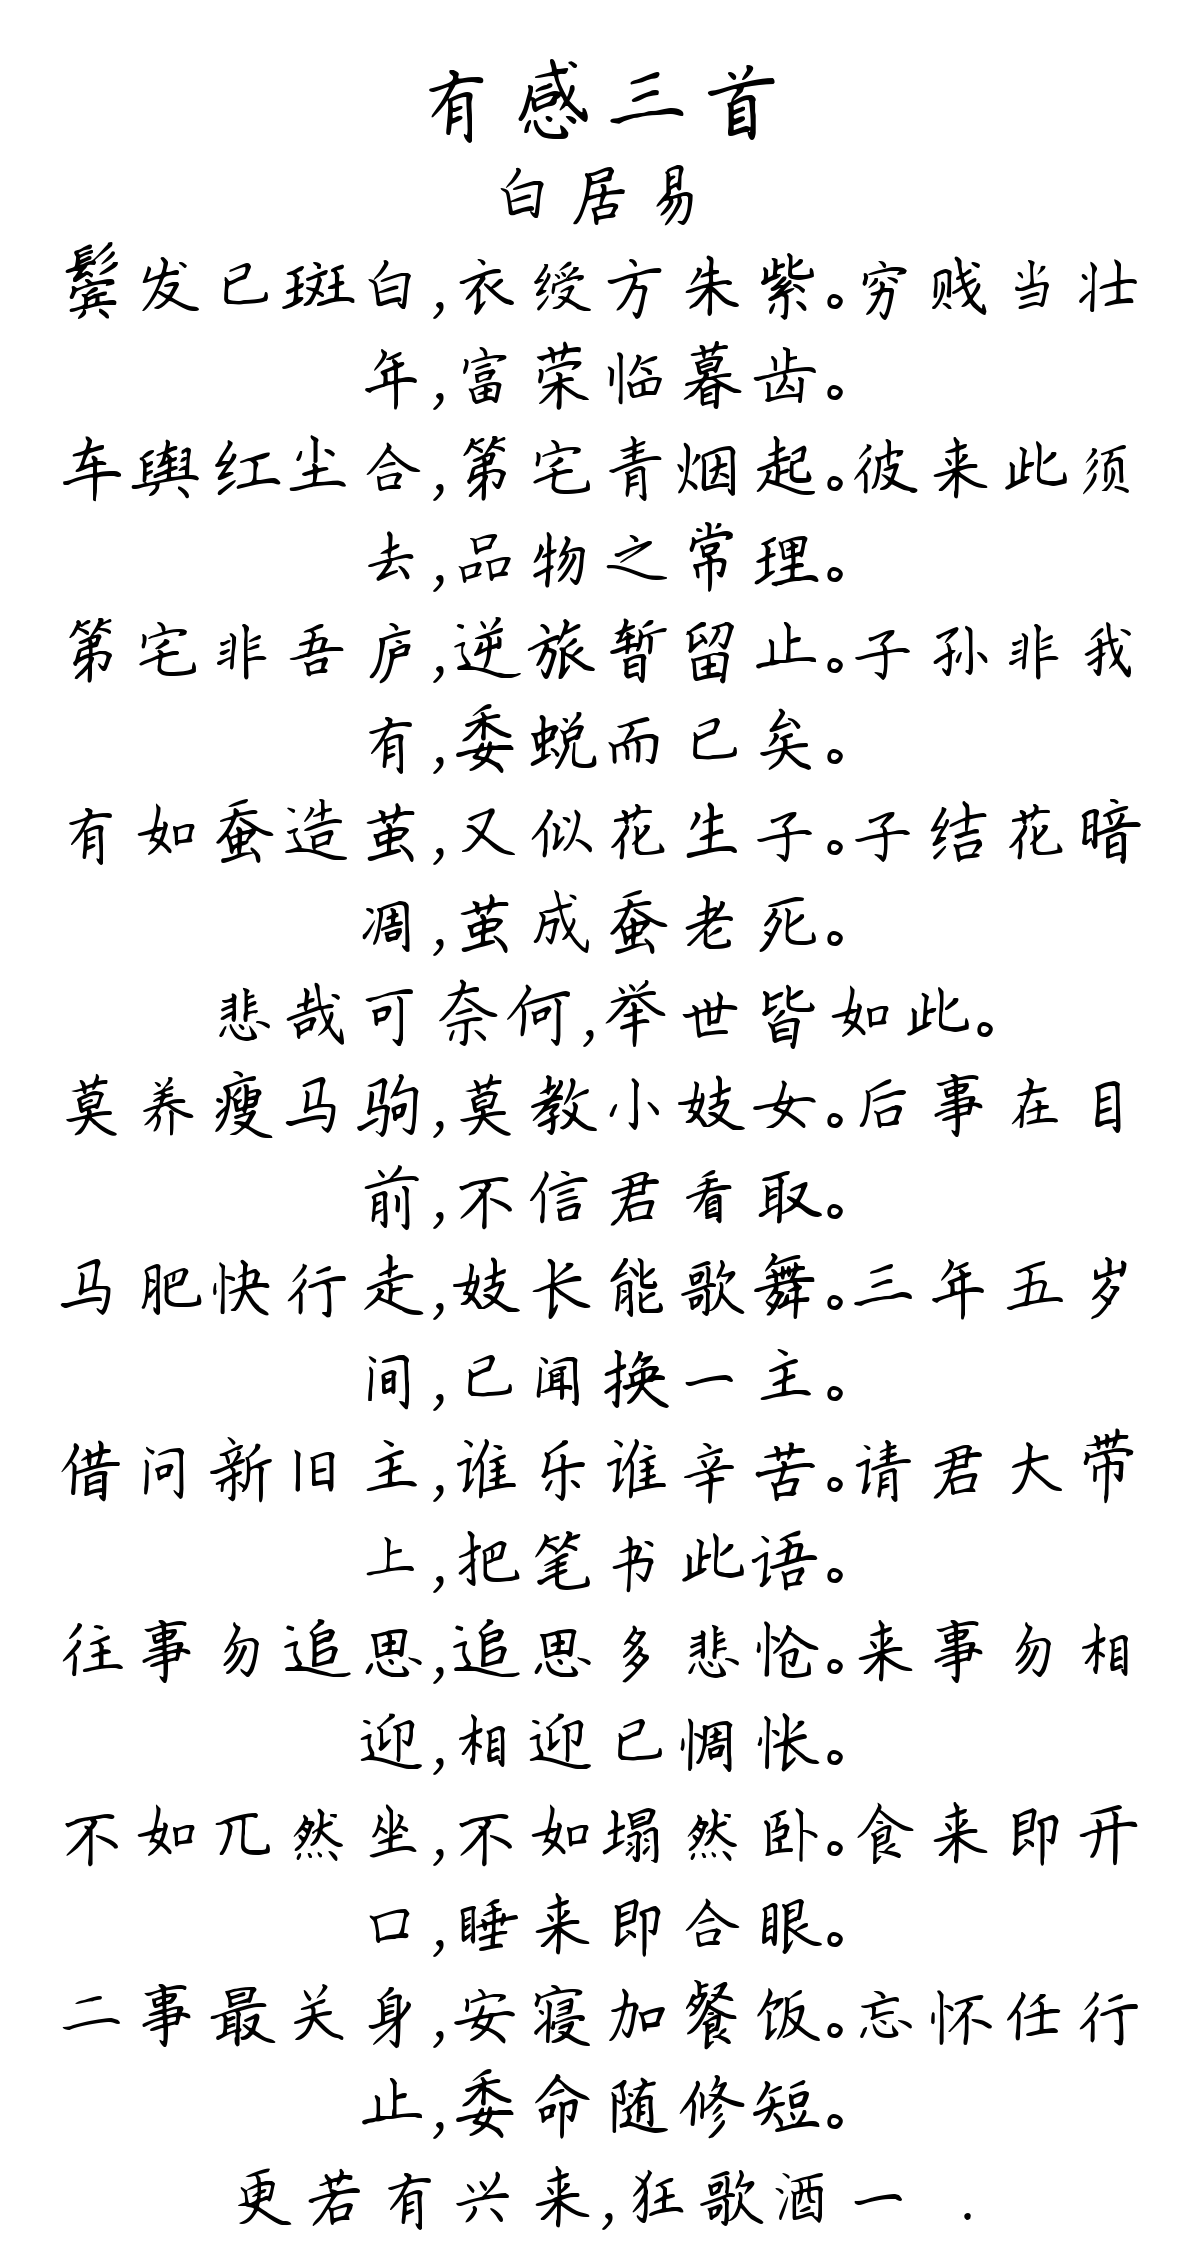 有感三首
白居易
鬓发已斑白,衣绶方朱紫。穷贱当壮
年,富荣临暮齿。
车舆红尘合,第宅青烟起。彼来此须
去,品物之常理。
第宅非吾庐,逆旅暂留止。子孙非我
有,委蜕而已矣。
有如蚕造茧,又似花生子。子结花暗
凋,茧成蚕老死。
悲哉可奈何,举世皆如此。
莫养瘦马驹,莫教小妓女。后事在目
前,不信君看取。
马肥快行走,妓长能歌舞。三年五岁
间,已闻换一主。
借问新旧主,谁乐谁辛苦。请君大带
上,把笔书此语。
往事勿追思,追思多悲怆。来事勿相
迎,相迎已惆怅。
不如兀然坐,不如塌然卧。食来即开
口,睡来即合眼。
二事最关身,安寝加餐饭。忘怀任行
止,委命随修短。
更若有兴来,狂歌酒一 .